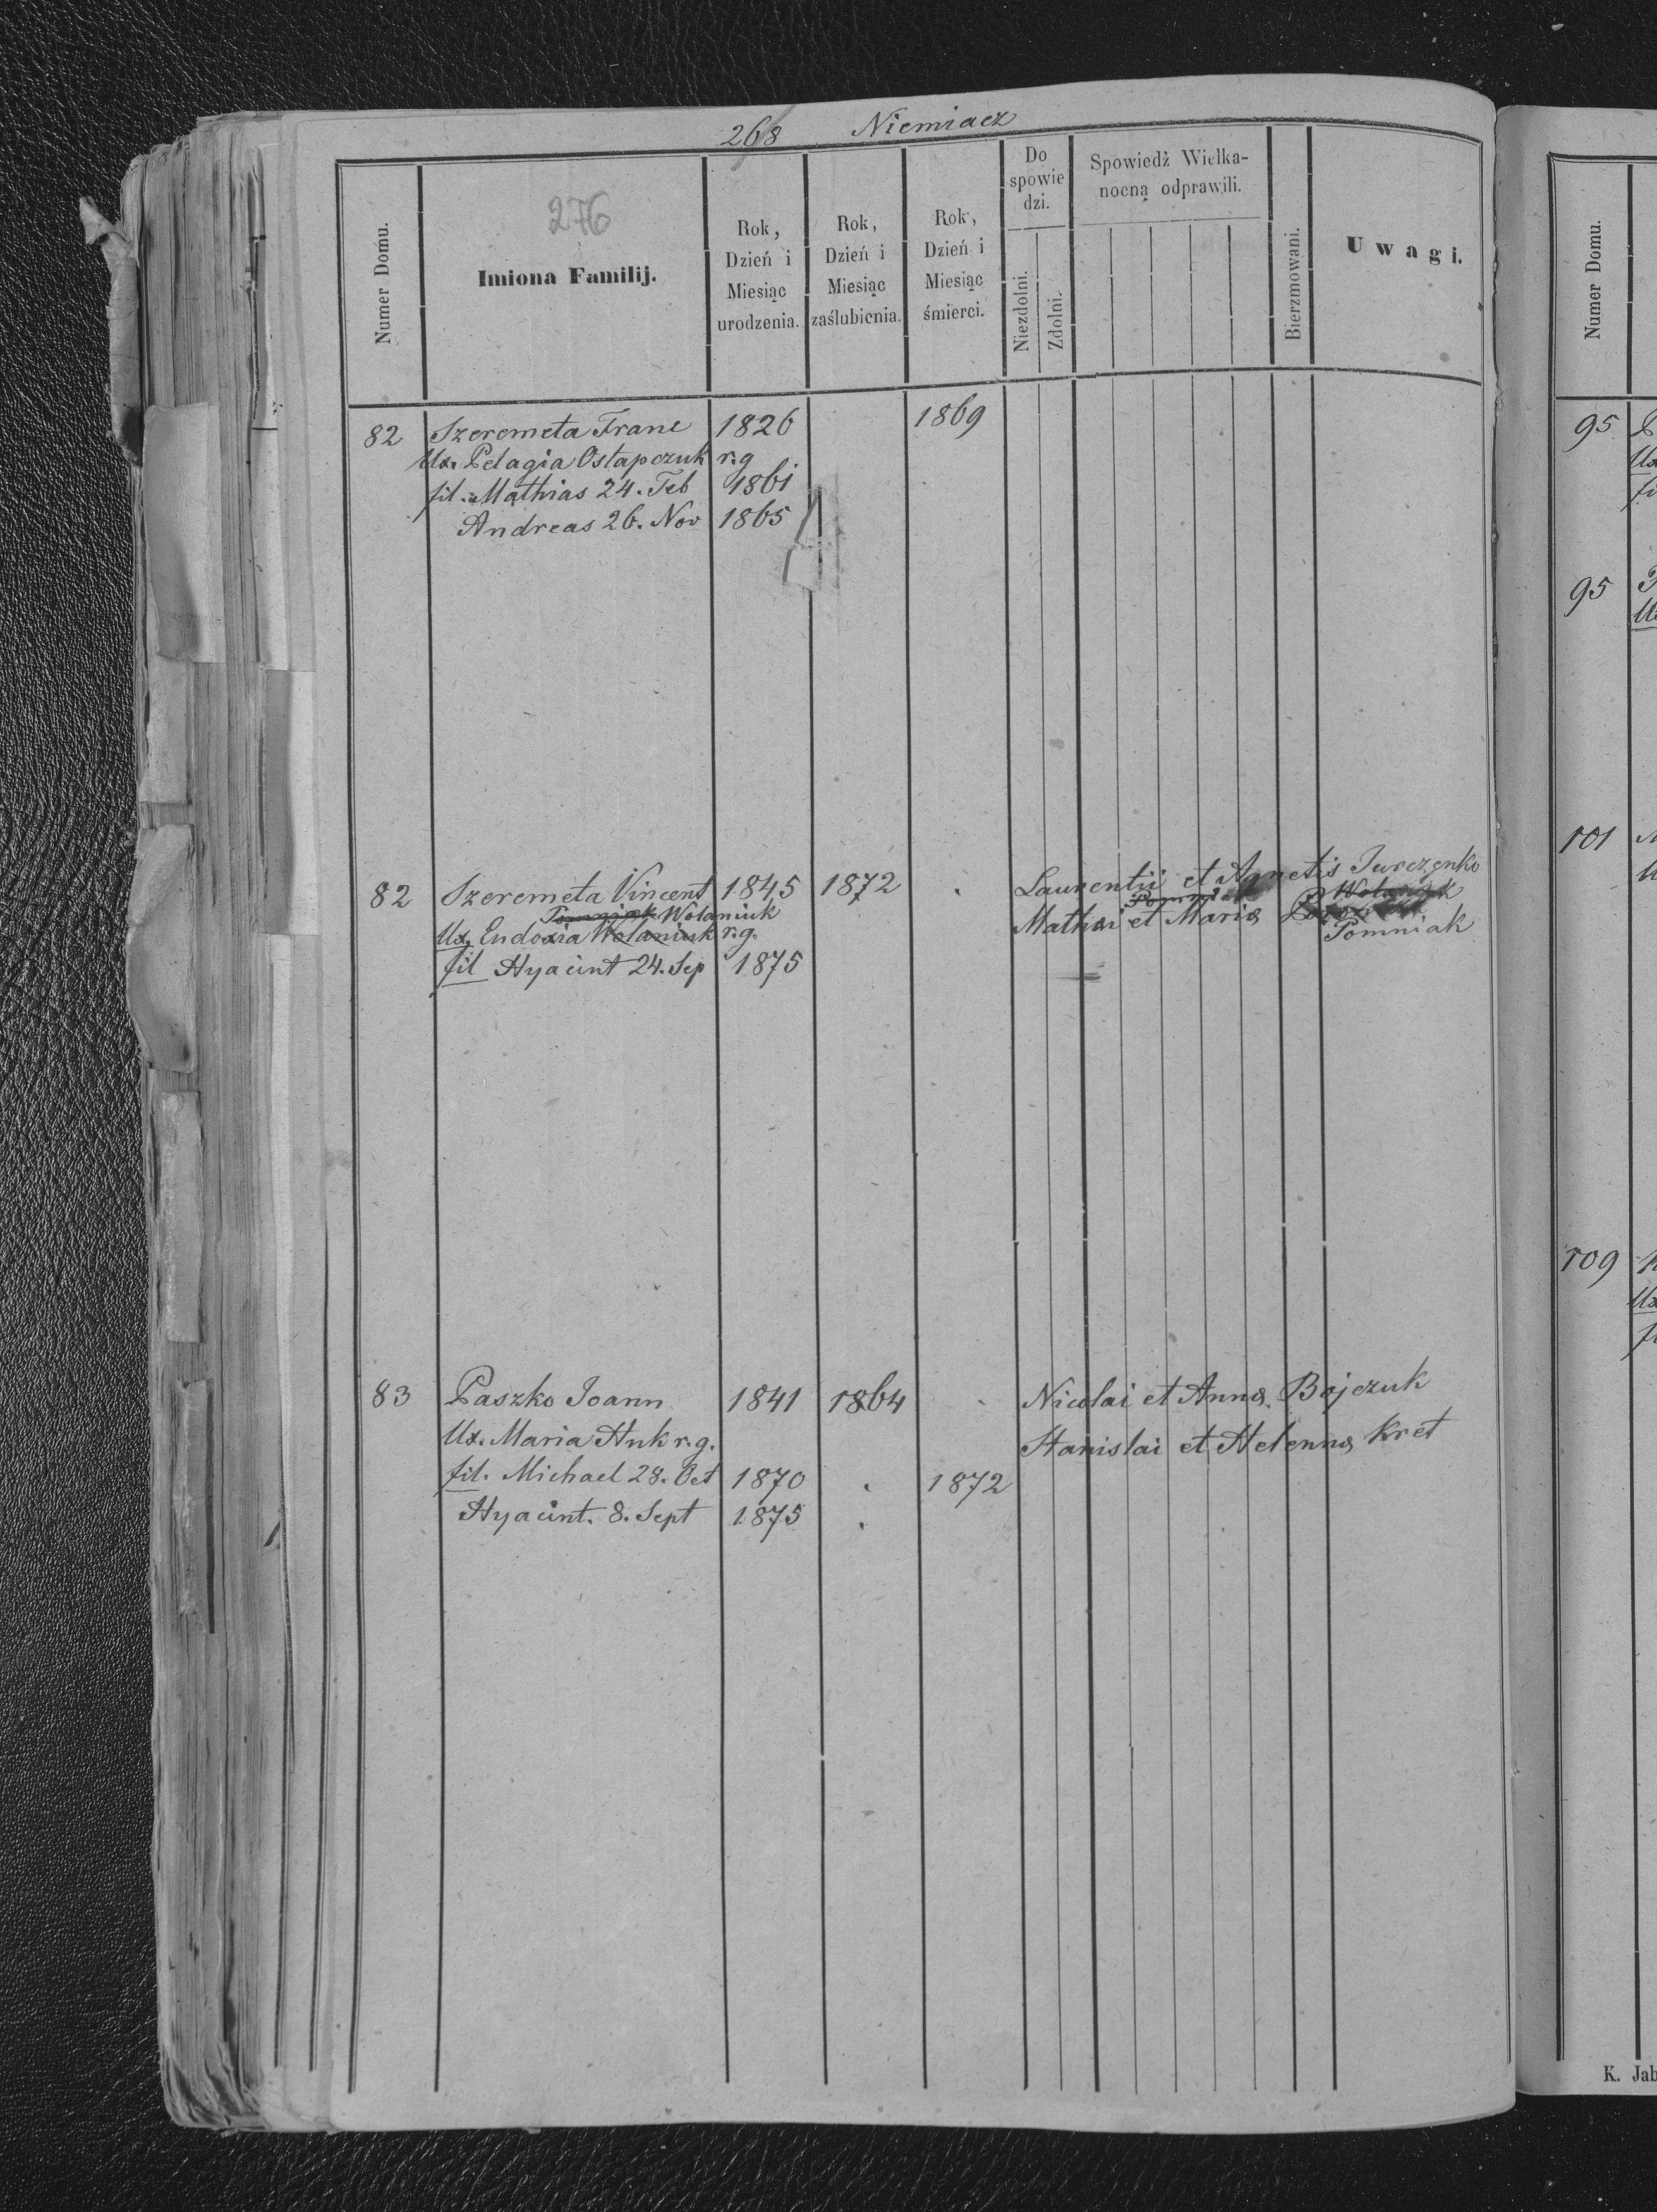 268 Niemiacz
276
Numer Domu.
Imiona Familij.
Rok, Dzień i Miesiąc urodzenia.
Rok, Dzień i Miesiąc zaślubienia.
Rok, Dzień i Miesiąc śmierci.
Do spowiedzi.
Niezdolni.
Zdolni.
Spowiedź Wielkanocną odprawili.
Bierzmowani.
Uwagi.
82 Szeremeta Franc 1826 1869
Ux. Pelagia Ostapczuk r.g
fil. Mathias 24. Feb 1861
Andreas 26. Nov 1865
82 Szeremeta Vincent 1845 1872 Laurentii et Agnetis Jurczenko
Pomniak Wolaniuk
Ux. Eudoxia Wolaniuk r.g. Mathaei et Mariae Pomniak
fil Hyacint 24. Sep 1875
83 Paszko Joann 1841 1864 Nicolai et Annae Bojczuk
Ux. Maria Hnk r.g. Stanislai et Helennae Kret
fil. Michael 28. Oct 1870 1872
Hyacint. 8. Sept 1875
Numer Domu.
95
Ux
95
101
109
Ux
K. Jab